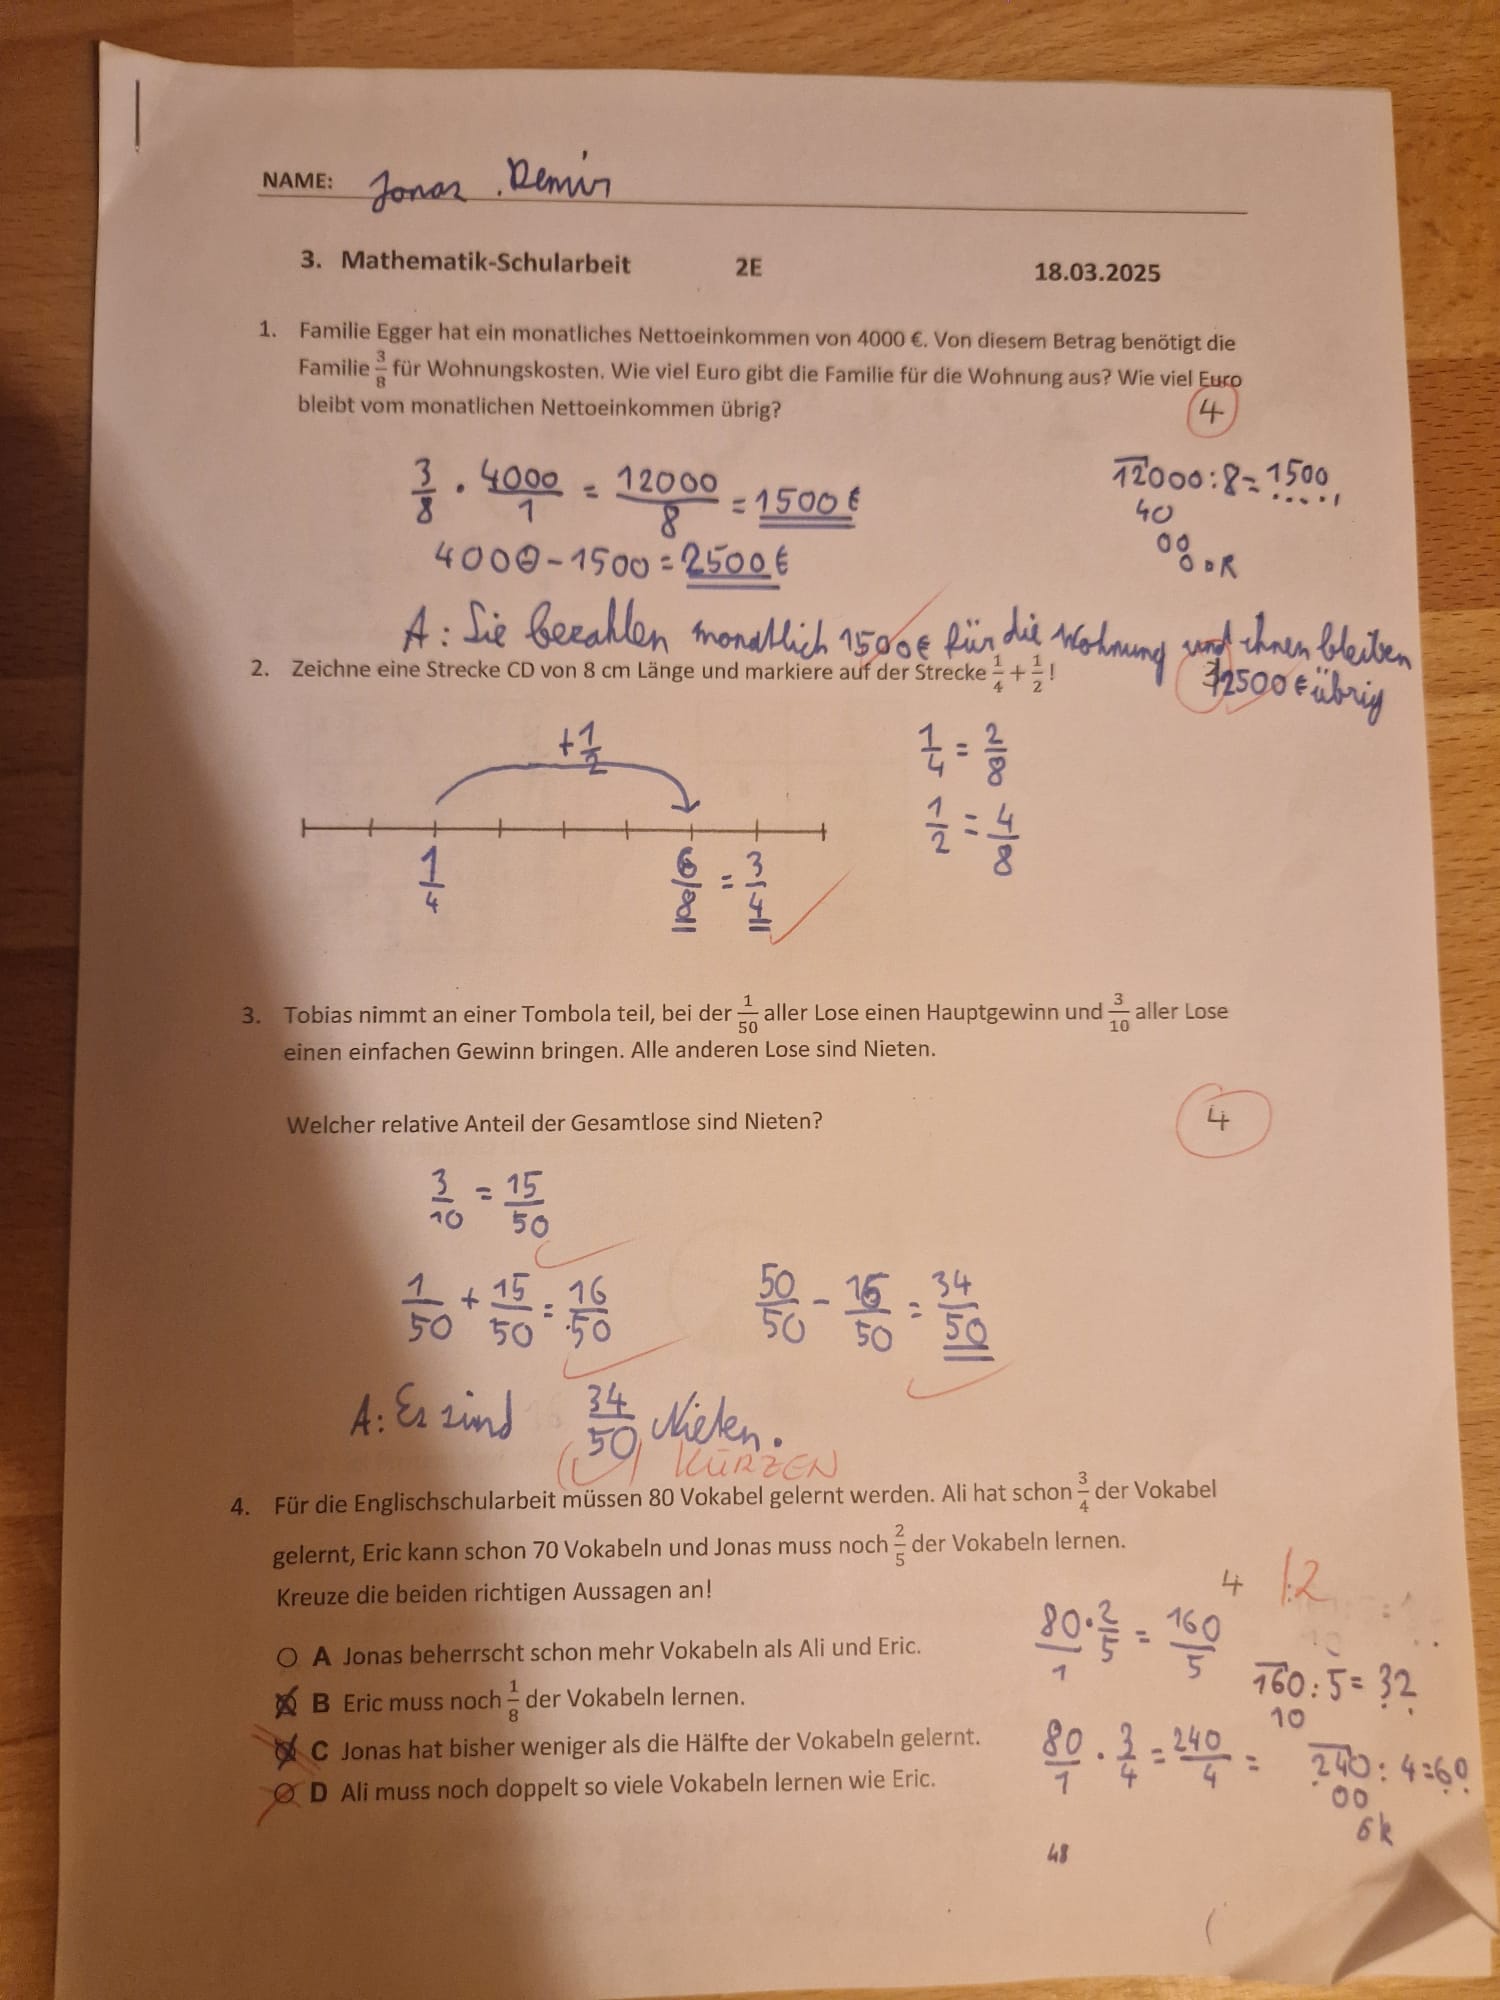 NAME: Jonas Demir
3. Mathematik-Schularbeit 2E 18.03.2025
1. Familie Egger hat ein monatliches Nettoeinkommen von 4000 €. Von diesem Betrag benötigt die
Familie 3/8 für Wohnungskosten. Wie viel Euro gibt die Familie für die Wohnung aus? Wie viel Euro
bleibt vom monatlichen Nettoeinkommen übrig?
4
3/8 · 4000/1 = 12000/8 = 1500 €
12000:8=1500
40
00
0 0R
4000-1500=2500€
A: Sie bezahlen monatlich 1500€ für die Wohnung und ihnen bleiben
2500€ übrig
2. Zeichne eine Strecke CD von 8 cm Länge und markiere auf der Strecke 1/4 + 1/2 !
3
+1/2
1/4 = 2/8
1/2 = 4/8
1/4
6/8 = 3/4
3. Tobias nimmt an einer Tombola teil, bei der 1/50 aller Lose einen Hauptgewinn und 3/10 aller Lose
einen einfachen Gewinn bringen. Alle anderen Lose sind Nieten.
Welcher relative Anteil der Gesamtlose sind Nieten?
4
3/10 = 15/50
1/50 + 15/50 = 16/50
50/50 - 16/50 = 34/50
A: Es sind 34/50 Nieten.
KÜRZEN
4. Für die Englischschularbeit müssen 80 Vokabel gelernt werden. Ali hat schon 3/4 der Vokabel
gelernt, Eric kann schon 70 Vokabeln und Jonas muss noch 2/5 der Vokabeln lernen.
Kreuze die beiden richtigen Aussagen an!
4
A Jonas beherrscht schon mehr Vokabeln als Ali und Eric.
B Eric muss noch 1/8 der Vokabeln lernen.
C Jonas hat bisher weniger als die Hälfte der Vokabeln gelernt.
D Ali muss noch doppelt so viele Vokabeln lernen wie Eric.
80/1 · 2/5 = 160/5
160:5=32
10
80/1 · 3/4 = 240/4 =
240:4=60
00
48